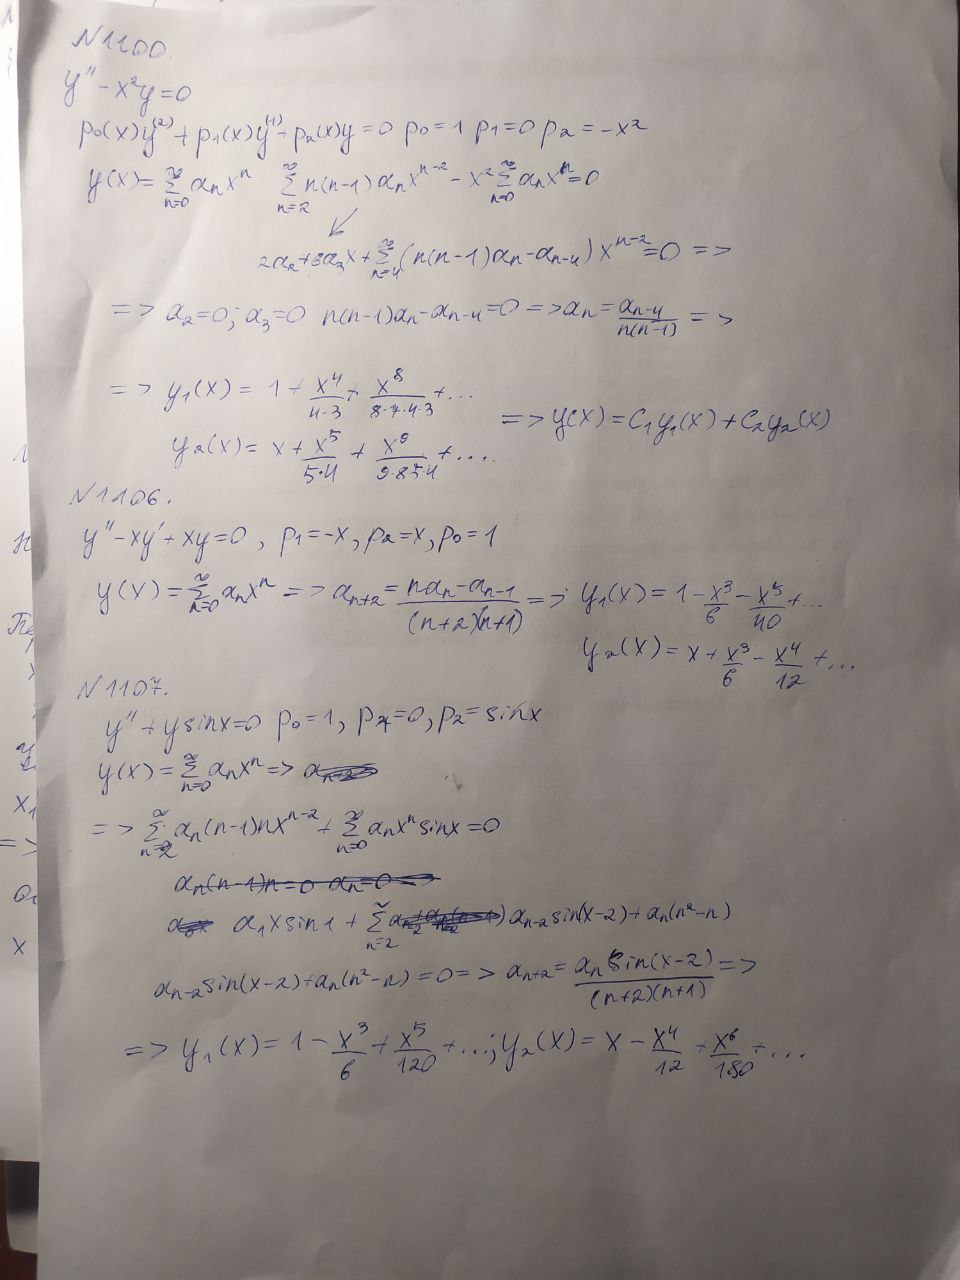 N1100.
y'' - x²y = 0
p₀(x)y⁽²⁾ + p₁(x)y⁽¹⁾ + p₂(x)y = 0 p₀ = 1 p₁ = 0 p₂ = -x²
y(x) = ∑_{n=0}^∞ aₙxⁿ ∑_{n=2}^∞ n(n-1)aₙxⁿ⁻² - x² ∑_{n=0}^∞ aₙxⁿ = 0
2a₂ + 6a₃x + ∑_{n=4}^∞ (n(n-1)aₙ - aₙ₋₄) xⁿ⁻² = 0 =>
=> a₂ = 0; a₃ = 0 n(n-1)aₙ - aₙ₋₄ = 0 => aₙ = aₙ₋₄/(n(n-1)) =>
=> y₁(x) = 1 + x⁴/(4·3) + x⁸/(8·7·4·3) + ...
=> y(x) = C₁y₁(x) + C₂y₂(x)
y₂(x) = x + x⁵/(5·4) + x⁹/(9·8·5·4) + ....
N1106.
y'' - xy' + xy = 0, p₁ = -x, p₂ = x, p₀ = 1
y(x) = ∑_{n=0}^∞ aₙxⁿ => aₙ₊₂ = (naₙ - aₙ₋₁)/((n+2)(n+1)) => y₁(x) = 1 - x³/6 - x⁵/40 + ...
y₂(x) = x + x³/6 - x⁴/12 + ...
N1107.
y'' + y sinx = 0 p₀ = 1, p₁ = 0, p₂ = sinx
y(x) = ∑_{n=0}^∞ aₙxⁿ =>
=> ∑_{n=2}^∞ aₙ(n-1)nxⁿ⁻² + ∑_{n=0}^∞ aₙxⁿ sinx = 0
aₙ(n-1)n = 0 aₙ = 0 =>
a₁x sin1 + ∑_{n=2}^∞ aₙ₋₂ sin(x-2) + aₙ(n²-n)
aₙ₋₂ sin(x-2) + aₙ(n²-n) = 0 => aₙ₊₂ = aₙ sin(x-2)/((n+2)(n+1)) =>
=> y₁(x) = 1 - x³/6 + x⁵/120 + ...; y₂(x) = x - x⁴/12 + x⁶/180 + ...